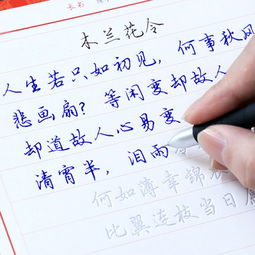 木兰花令
人生若只如初见，何事秋风
悲画扇？等闲变却故人
却道故人心易变
清宵半，泪雨
何如薄幸锦
比翼连枝当日